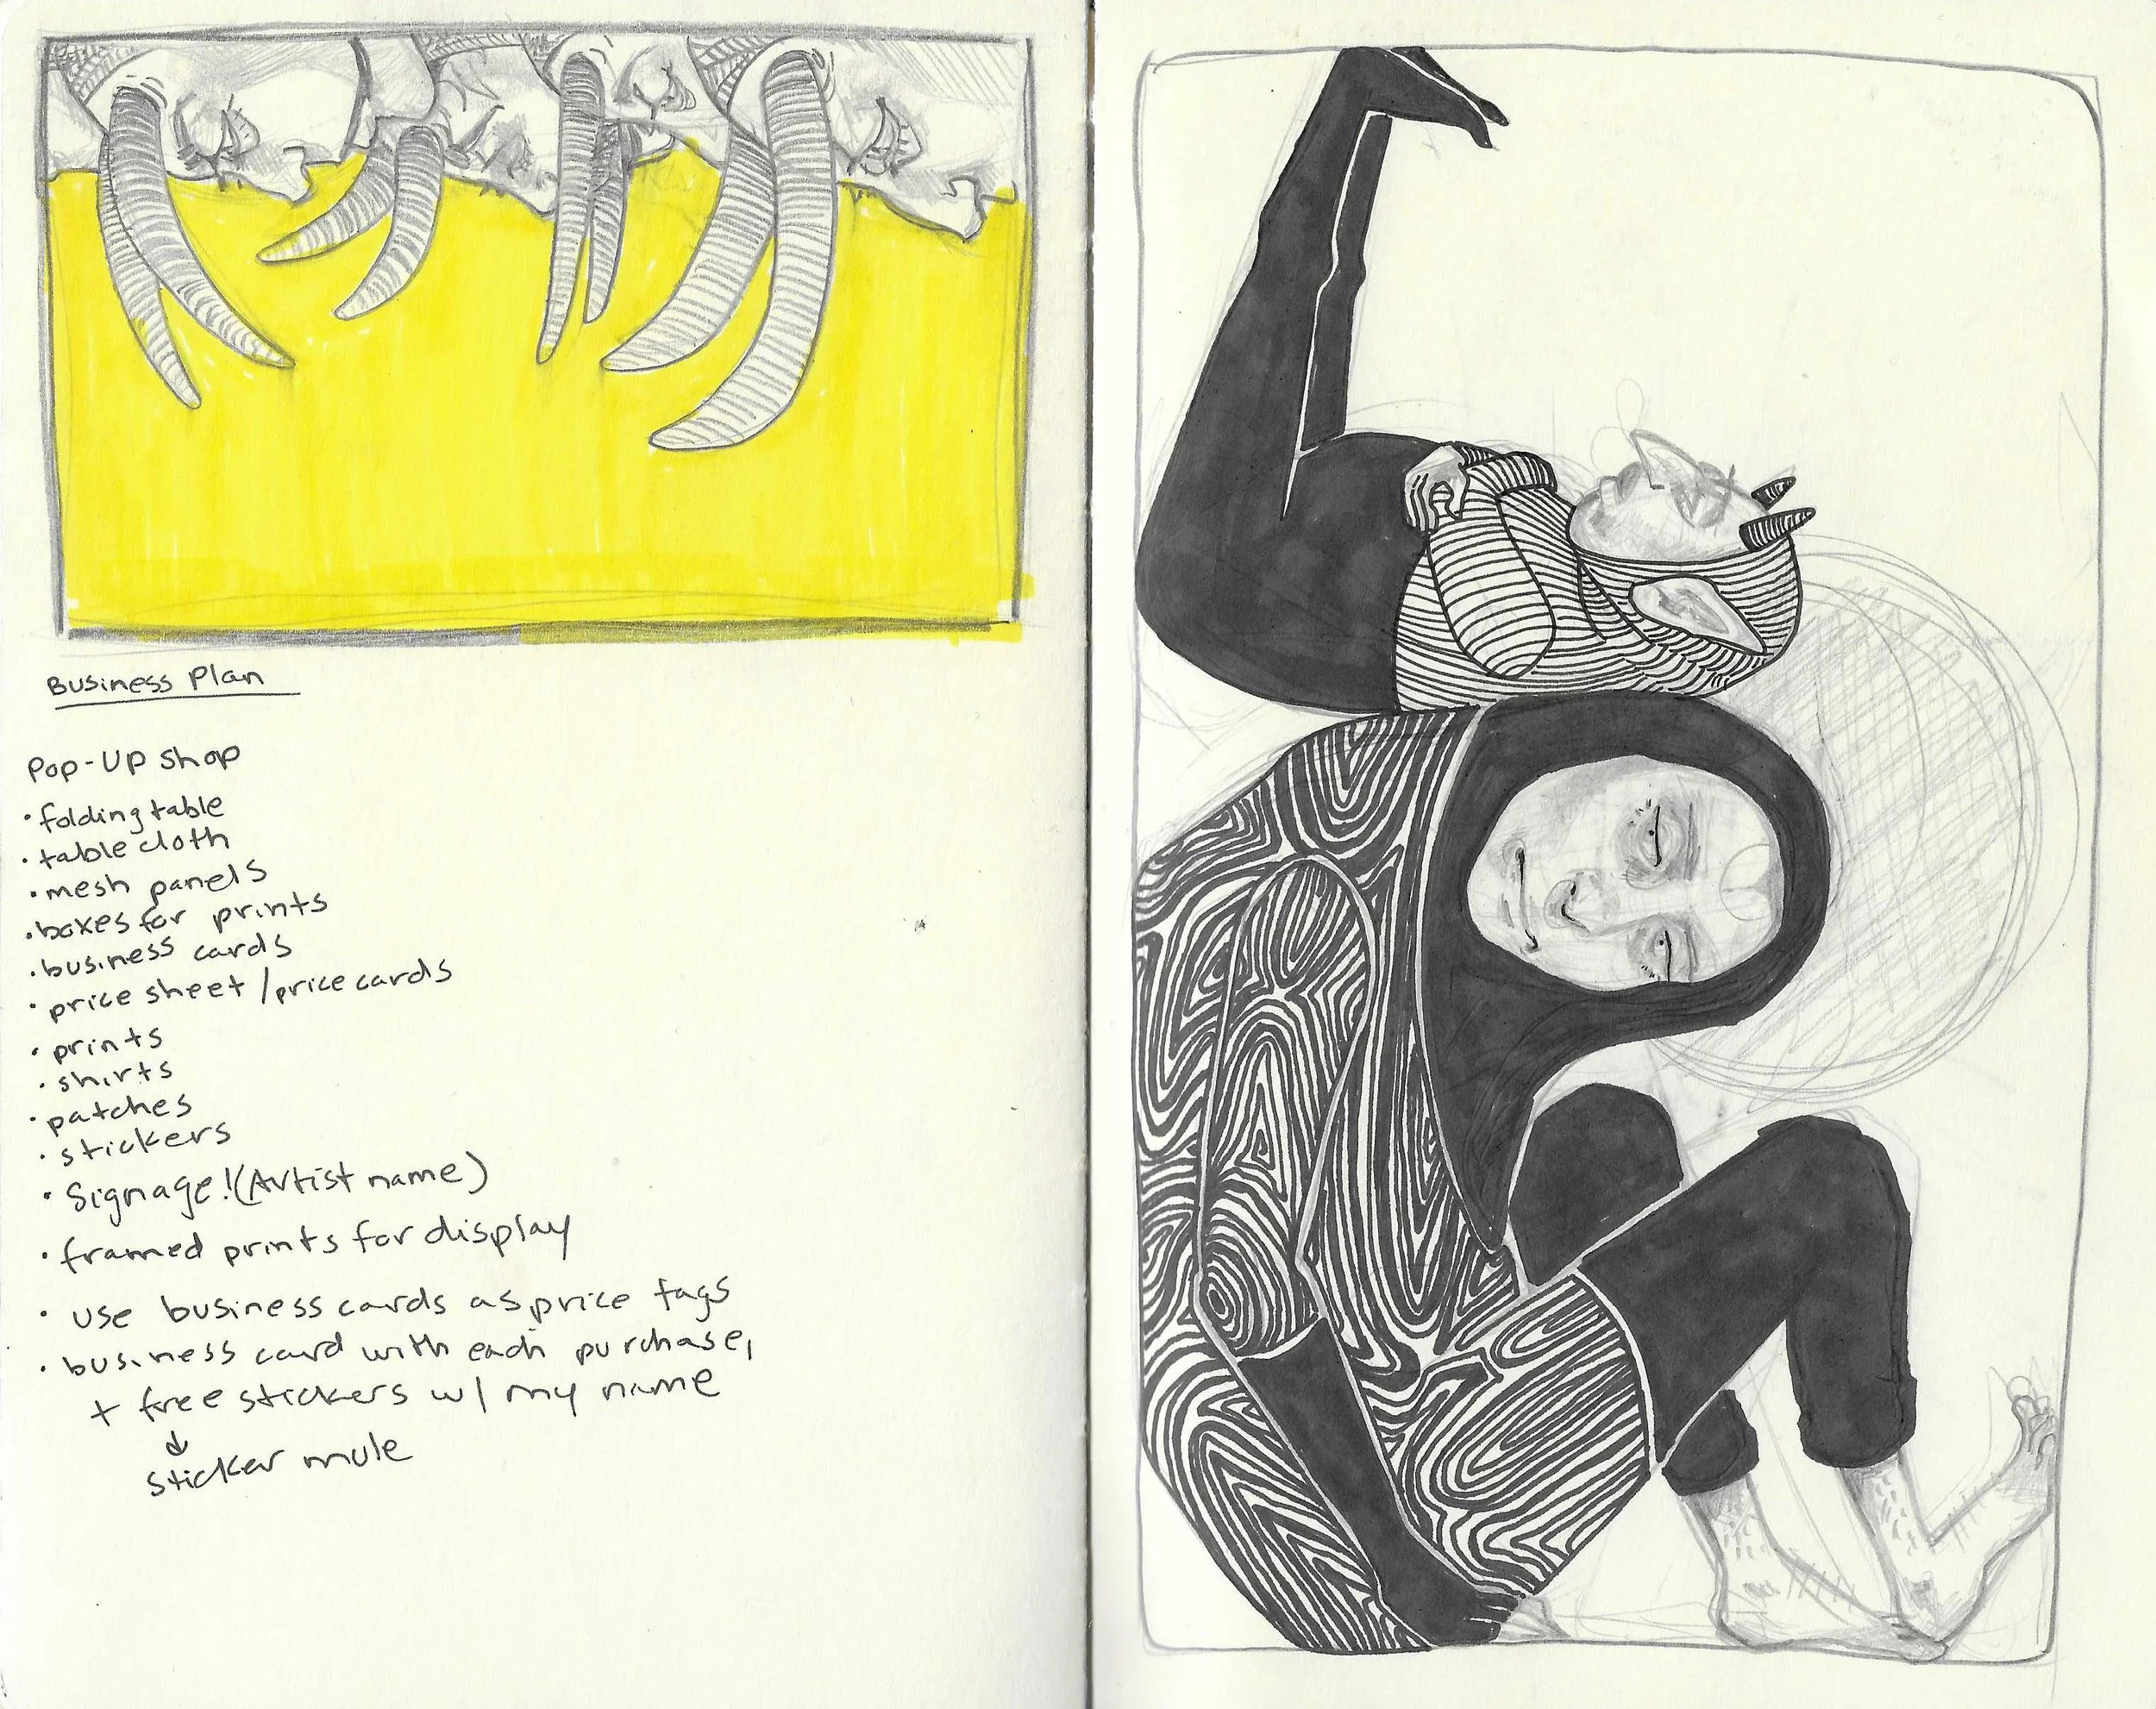 Business Plan
Pop-Up Shop
• folding table
• table cloth
• mesh panels
• boxes for prints
• business cards
• price sheet / price cards
• prints
• shirts
• patches
• stickers
• Signage! (Artist name)
• framed prints for display
• use business cards as price tags
• business card with each purchase,
+ free stickers w/ my name
↓
sticker mule